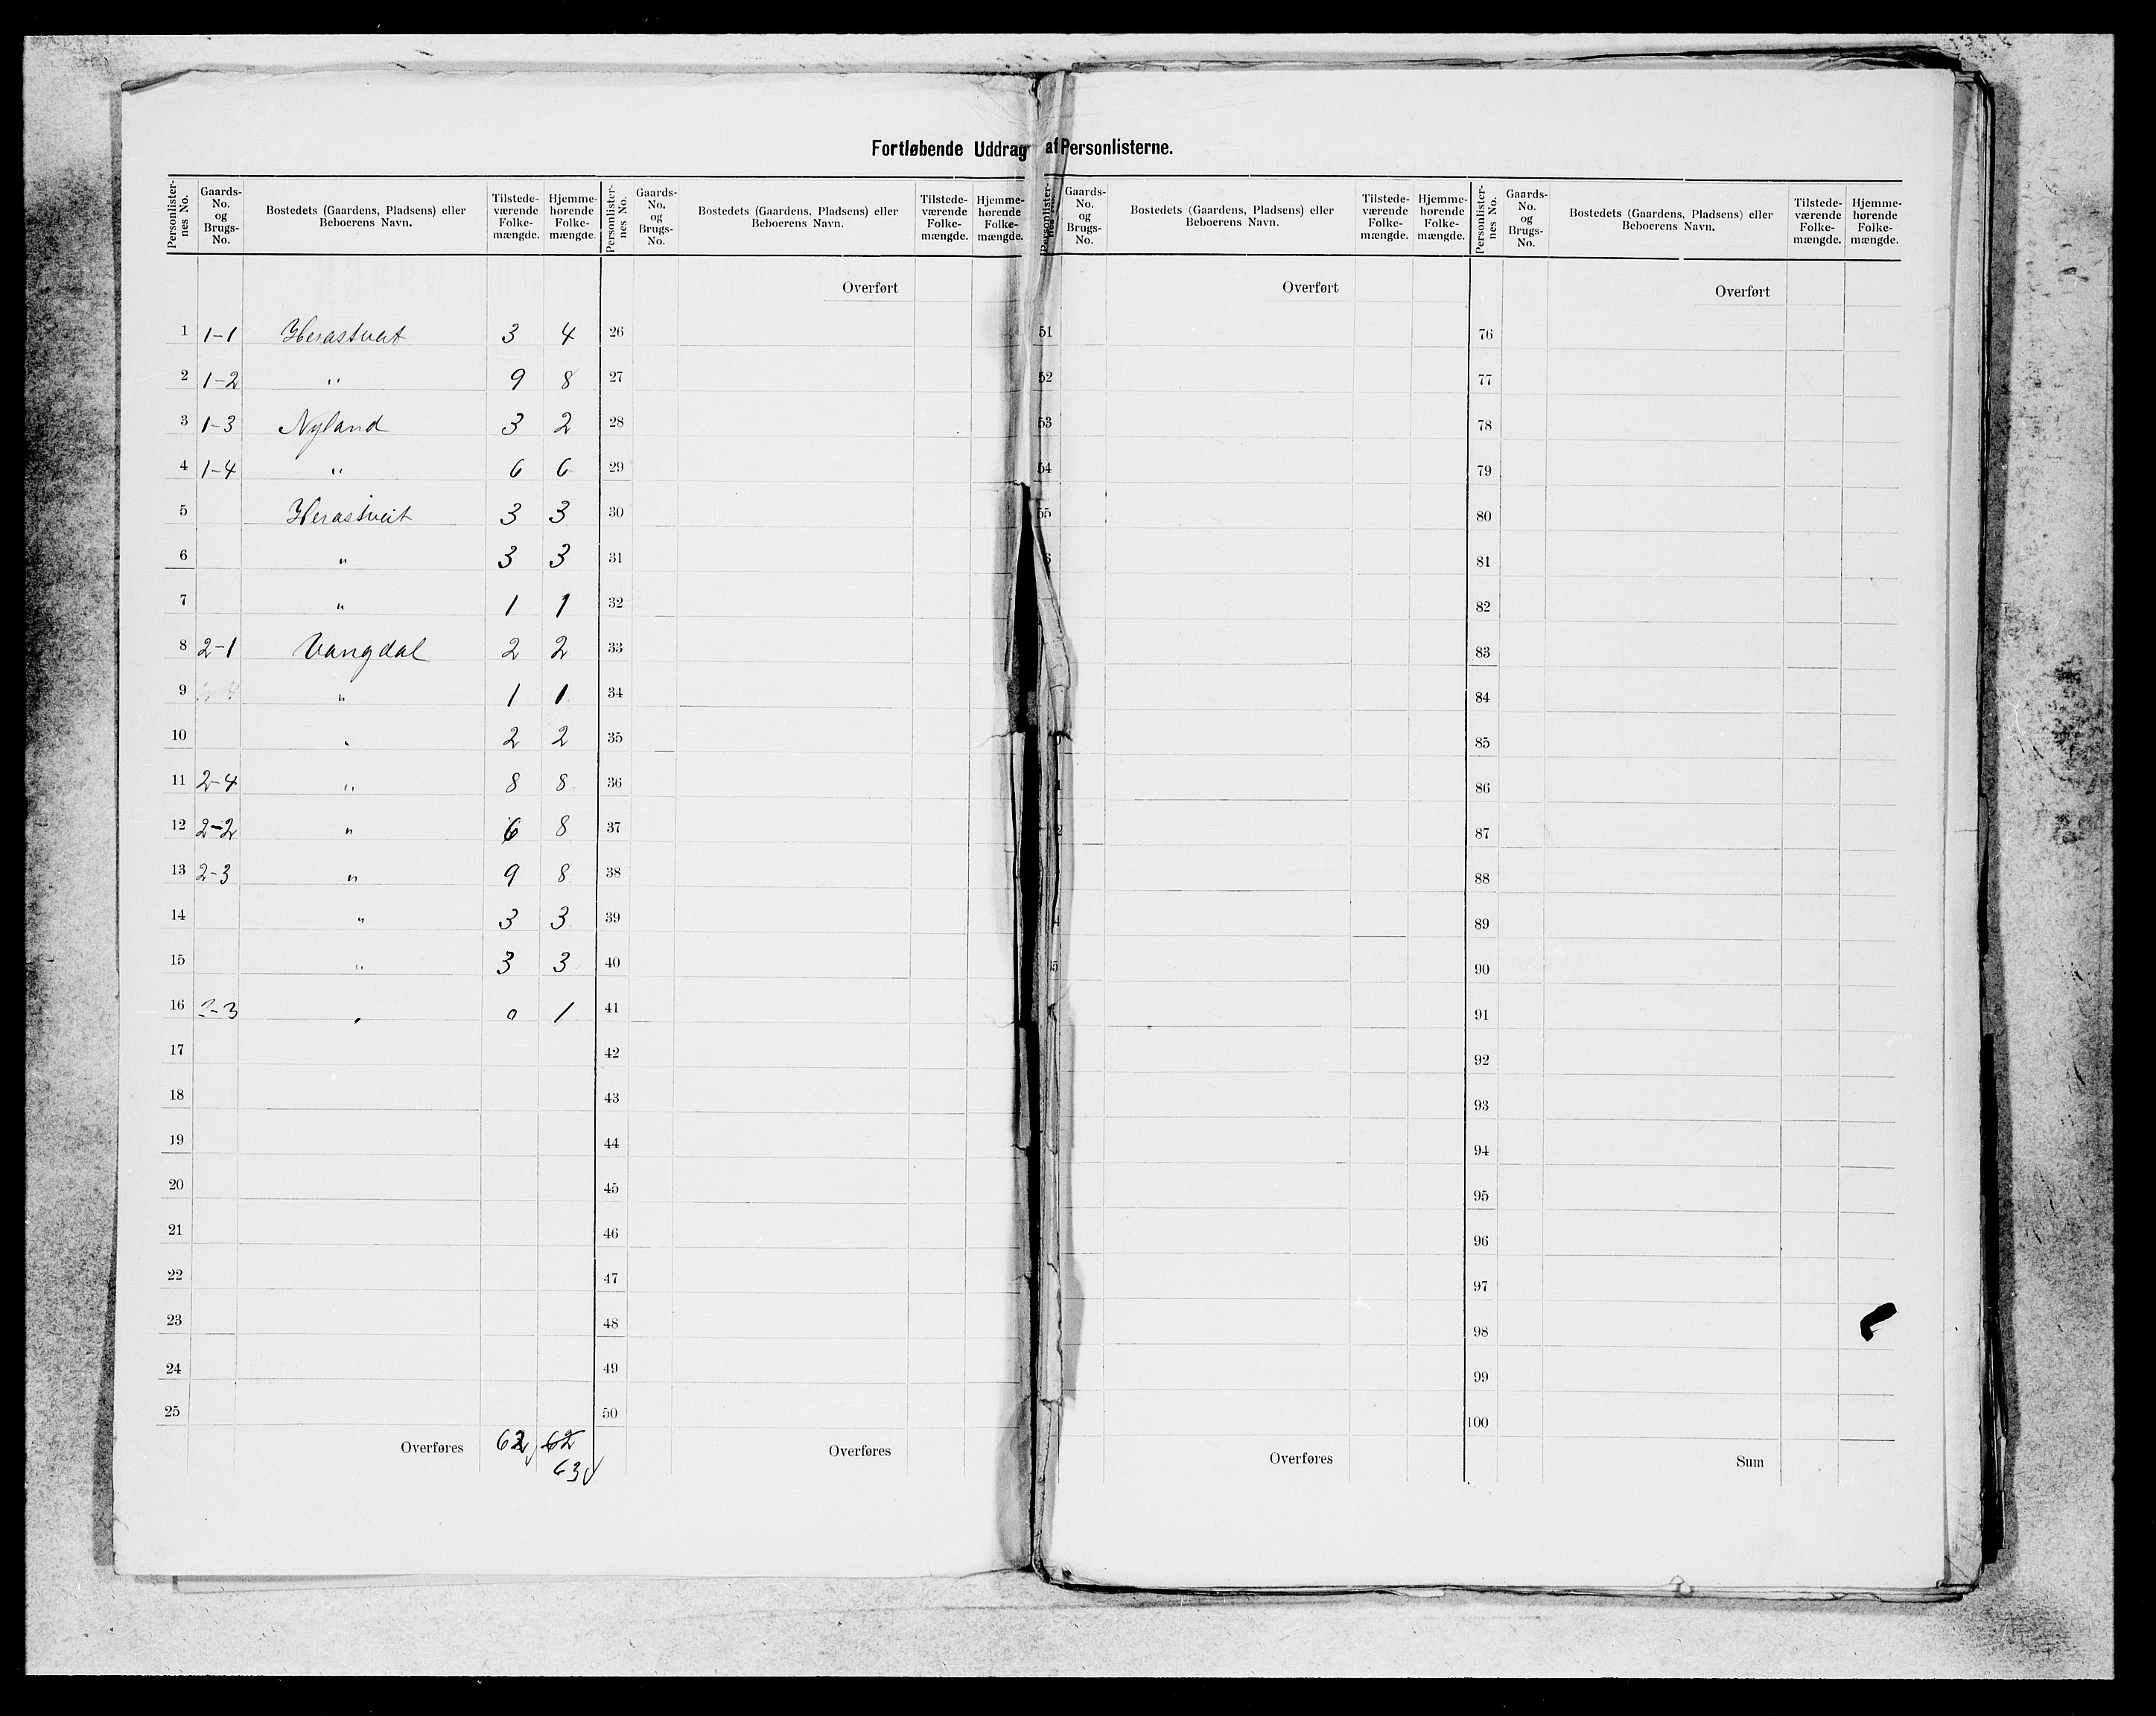 Fortløbende Uddrag af Personlisterne.
Personlisternes No. | Gaards-No. og Brugs-No. | Bostedets (Gaardens, Pladsens) eller Beboerens Navn. | Tilstedeværende Folkemængde. | Hjemmehørende Folkemængde.
1 1-1 Herastveit 3 4
2 1-2 " 9 8
3 1-3 Nyland 3 2
4 1-4 " 6 6
5 Herastveit 3 3
6 " 3 3
7 " 1 1
8 2-1 Vangdal 2 2
9 " 1 1
10 " 2 2
11 2-4 " 8 8
12 2-2 " 6 8
13 2-3 " 9 8
14 " 3 3
15 " 3 3
16 2-3 " 0 1
17
18
19
20
21
22
23
24
25
Overføres 62 62
63
Personlisternes No. | Gaards-No. og Brugs-No. | Bostedets (Gaardens, Pladsens) eller Beboerens Navn. | Tilstedeværende Folkemængde. | Hjemmehørende Folkemængde.
Overført
26
27
28
29
30
31
32
33
34
35
36
37
38
39
40
41
42
43
44
45
46
47
48
49
50
Overføres
Personlisternes No. | Gaards-No. og Brugs-No. | Bostedets (Gaardens, Pladsens) eller Beboerens Navn. | Tilstedeværende Folkemængde. | Hjemmehørende Folkemængde.
Overført
51
52
53
54
55
Overføres
Personlisternes No. | Gaards-No. og Brugs-No. | Bostedets (Gaardens, Pladsens) eller Beboerens Navn. | Tilstedeværende Folkemængde. | Hjemmehørende Folkemængde.
Overført
76
77
78
79
80
81
82
83
84
85
86
87
88
89
90
91
92
93
94
95
96
97
98
99
100
Sum